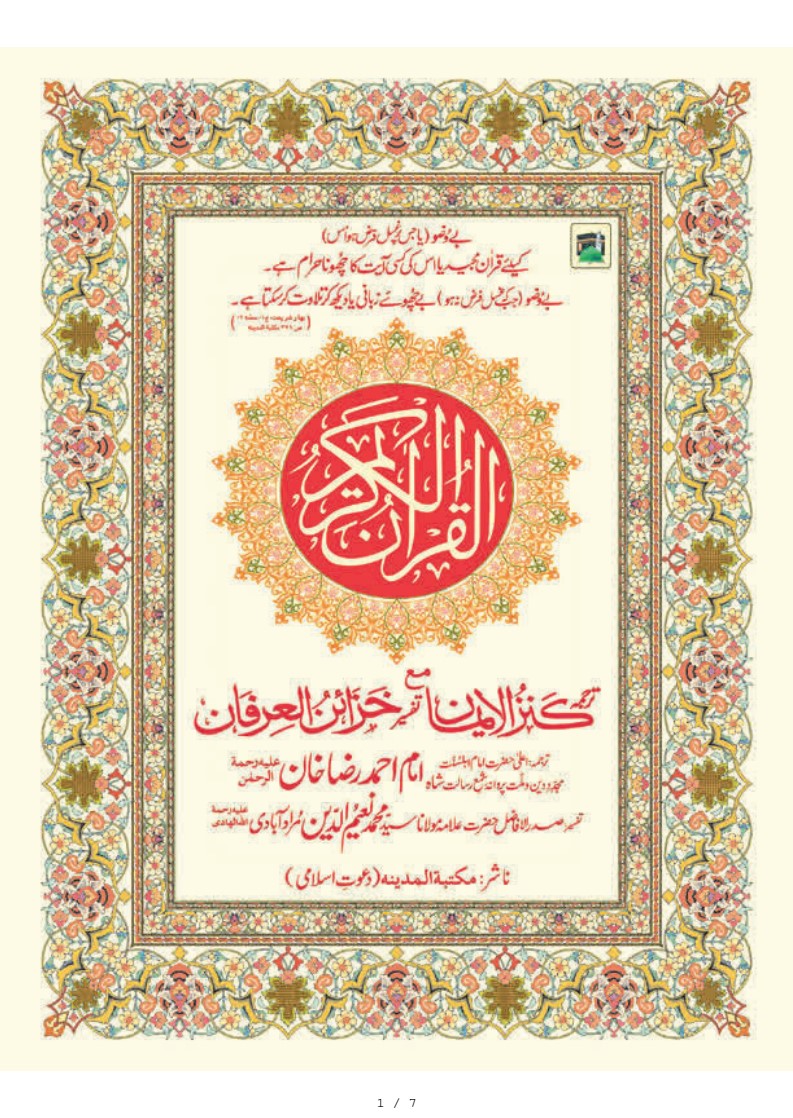 بے وضو (یا جس پر غسل فرض ہو اُس)
کیلئے قرآن مجید یا اس کی کسی آیت کا چھونا حرام ہے۔
بے وضو (جبکہ غسل فرض نہ ہو) بے چھوئے زبانی یا دیکھ کر تلاوت کر سکتا ہے۔
(بہار شریعت، ج۱، حصّہ ۲
ص۳۲۶ مکتبۃ المدینہ)
القرآن الکریم
ترجمہ کنز الایمان مع تفسیر خزائن العرفان
ترجمہ: اعلیٰ حضرت امام اہلسنّت
مجدّدِ دین و ملّت پروانۂ شمعِ رسالت شاہ امام احمد رضا خان علیہ رحمۃ الرحمٰن
تفسیر: صدر الافاضل حضرت علامہ مولانا سید محمد نعیم الدین مُراد آبادی علیہ رحمۃ اللہ الہادی
ناشر: مکتبۃ المدینہ (دعوتِ اسلامی)
1 / 7